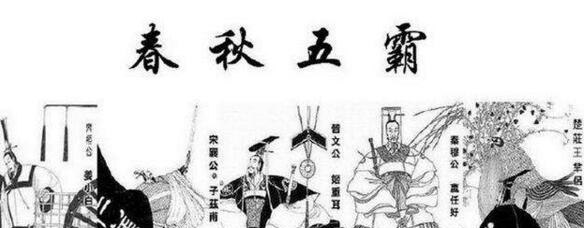 春秋五霸
齊桓公 姜小白
宋襄公 子茲甫
晉文公 姬重耳
秦穆公 嬴任好
楚莊王 羋侶